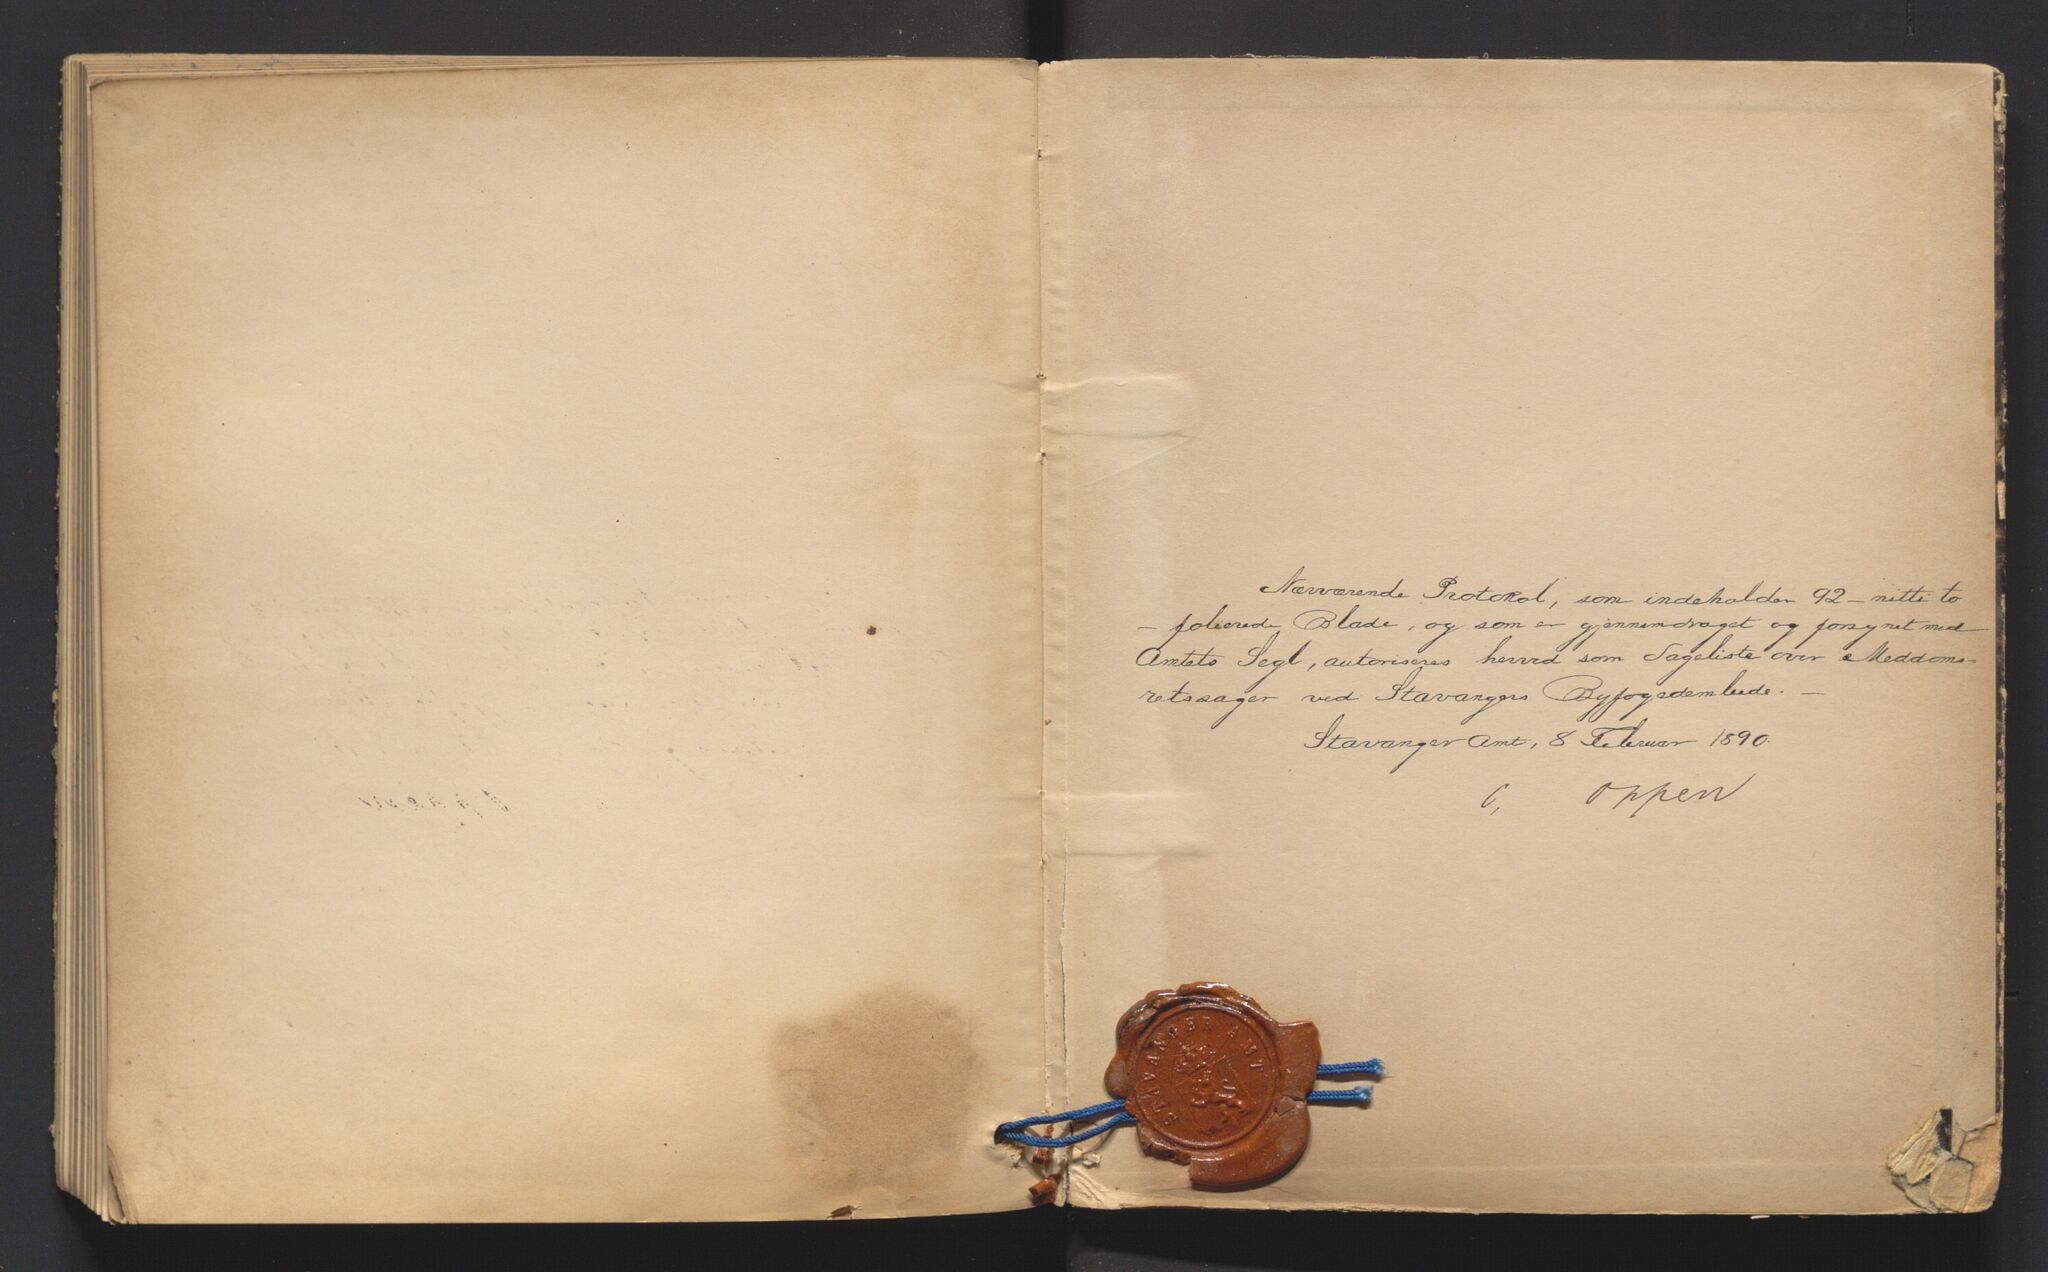 Nærværende Protokol, som indeholder 92 – nitti to
– folierede Blade, og som er gjennemdraget og forsynet med
Amtets Segl, autoriseres herved som Sageliste over Meddoms-
retssager ved Stavangers Byfogedembede. –
Stavanger Amt, 8 Februar 1890.
C, Oppen
STAVANGER AMT